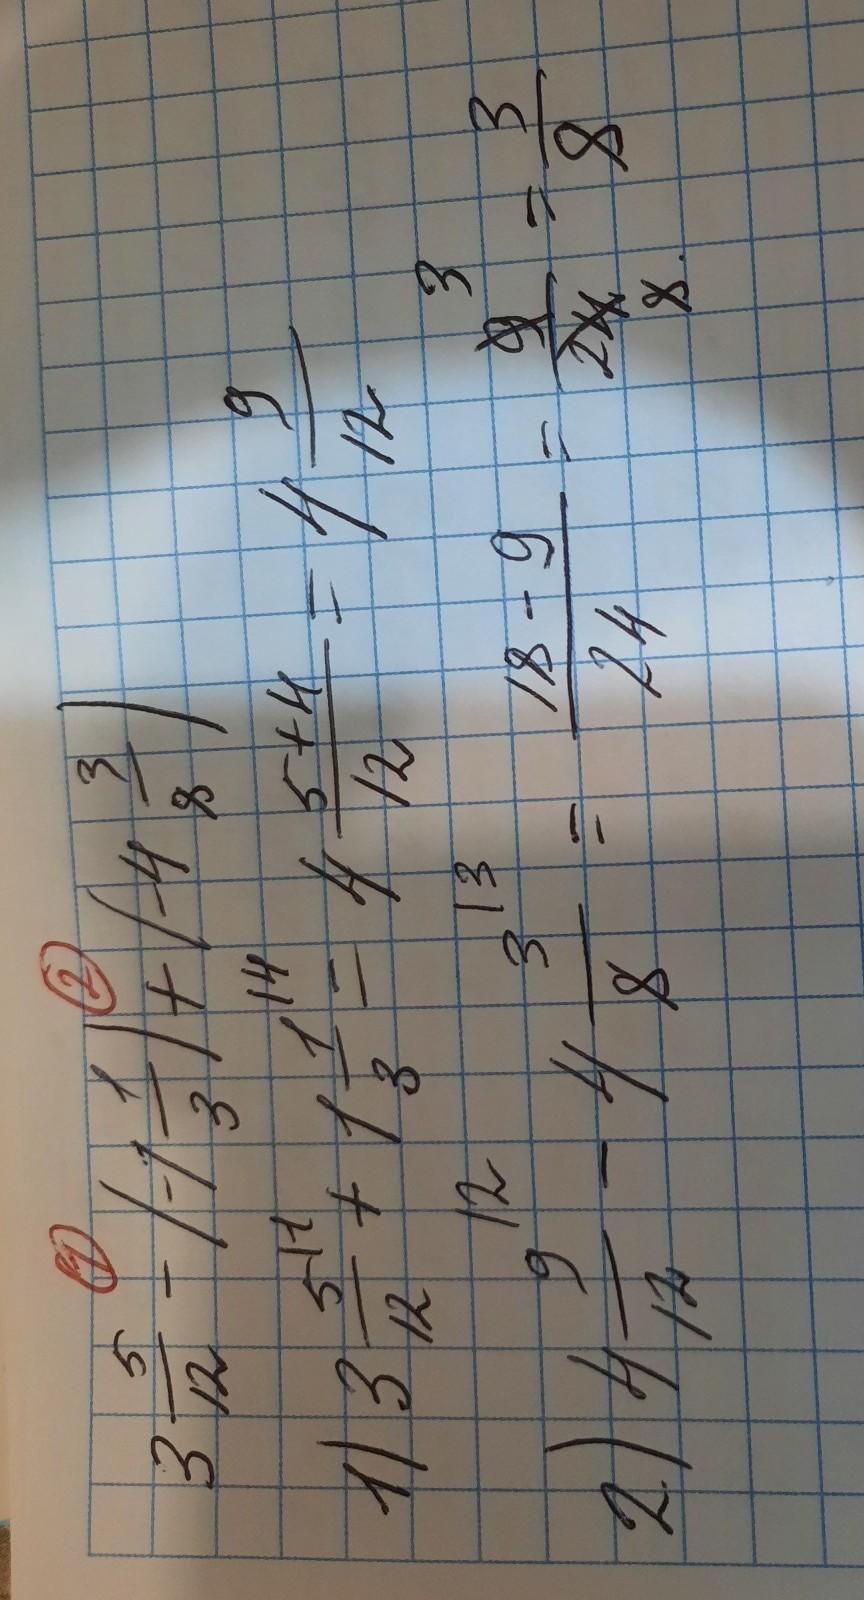 ① ②
3 5/12 - (-1 1/3) + (-4 3/8)
1) 3 5/12 |1 + 1 1/3 |4 = 4 5+4/12 = 4 9/12
2) 4 9/12 |2 - 4 3/8 |3 = 18-9/24 = 9/24 3 8 = 3/8